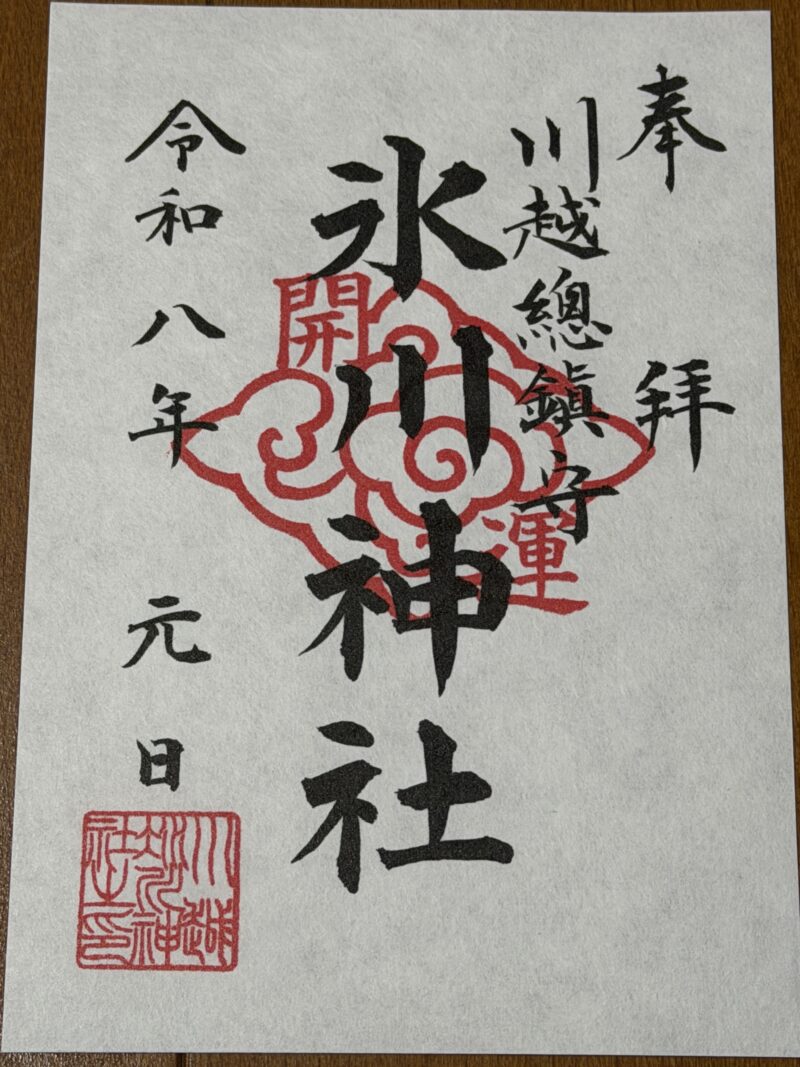 奉拝
川越總鎮守
氷川神社
開運
令和八年 元日
川越氷川神社印